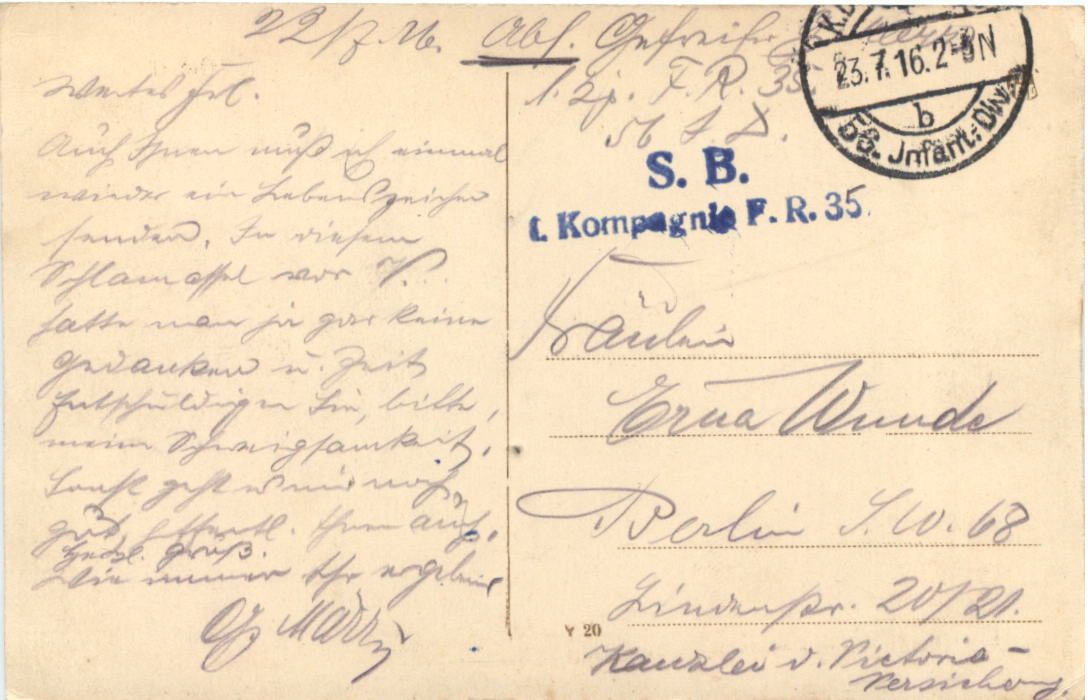 22/7.16. Abs. Gefreiter
1. Kp. F. R. 35.
56 I D.
23.7.16.2-3N
b
56. Infant.-Div.
S. B.
1. Kompagnie F. R. 35.
Wertes Frl.
Auch Ihnen muß ich einmal
wieder ein Lebenszeichen
senden. In diesem
Schlamassel vor V...
hatte man ja gar keine
Gedanken u. Zeit
Entschuldigen Sie, bitte,
meine Schweigsamkeit.
Sonst geht es mir noch
gut, hoffentl. Ihnen auch.
Herzl. Gruß.
Wie immer Ihr ergebener
Fräulein
Erna Wunde
Berlin S.W. 68
Lindenstr. 20/21.
Kanzlei d. Victoria-
Versicherung
Y 20